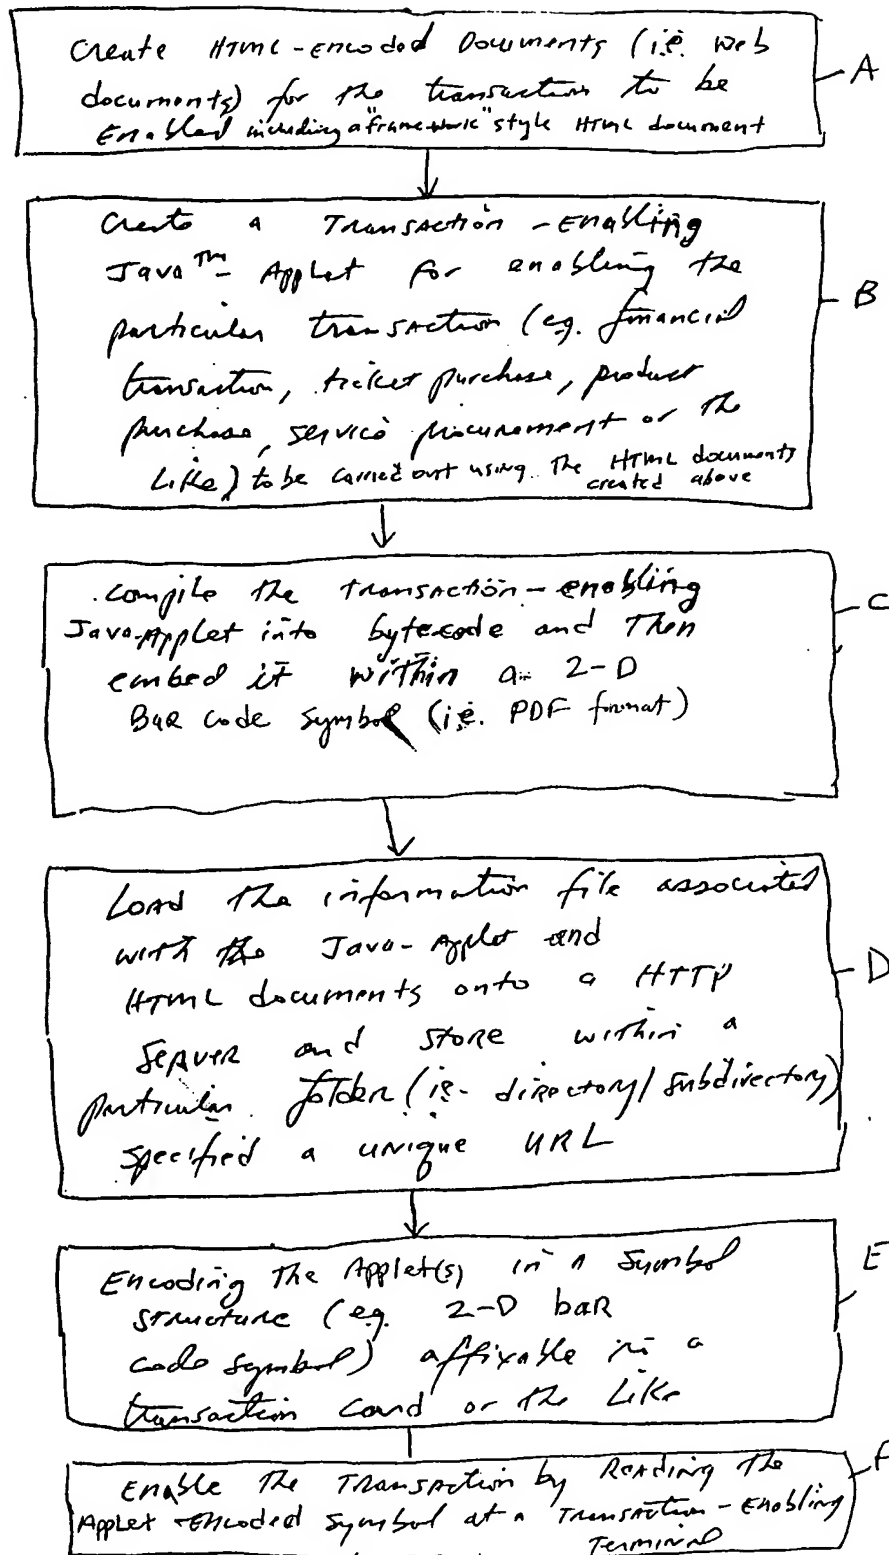 Create HTML-Encoded Documents (i.e. Web
documents) for the transaction to be
Enabled including a "framework" style HTML document
A
Create a Transaction-Enabling
Java™-Applet for enabling the
particular transaction (e.g. financial
transaction, ticket purchase, product
purchase, service procurement or the
Like) to be carried out using the HTML documents
created above
B
Compile the Transaction-enabling
Java-Applet into bytecode and Then
embed it within a 2-D
Bar code symbol (i.e. PDF format)
C
Load the information file associated
with the Java-Applet and
HTML documents onto a HTTP
Server and store within a
particular folder (ie- directory/subdirectory)
specified a unique URL
D
Encoding the Applet(s) in a Symbol
structure (eg. 2-D bar
code symbol) affixable in a
transaction card or the Like
E
Enable the Transaction by Reading the
Applet-Encoded Symbol at a Transaction-Enabling
Terminal
F